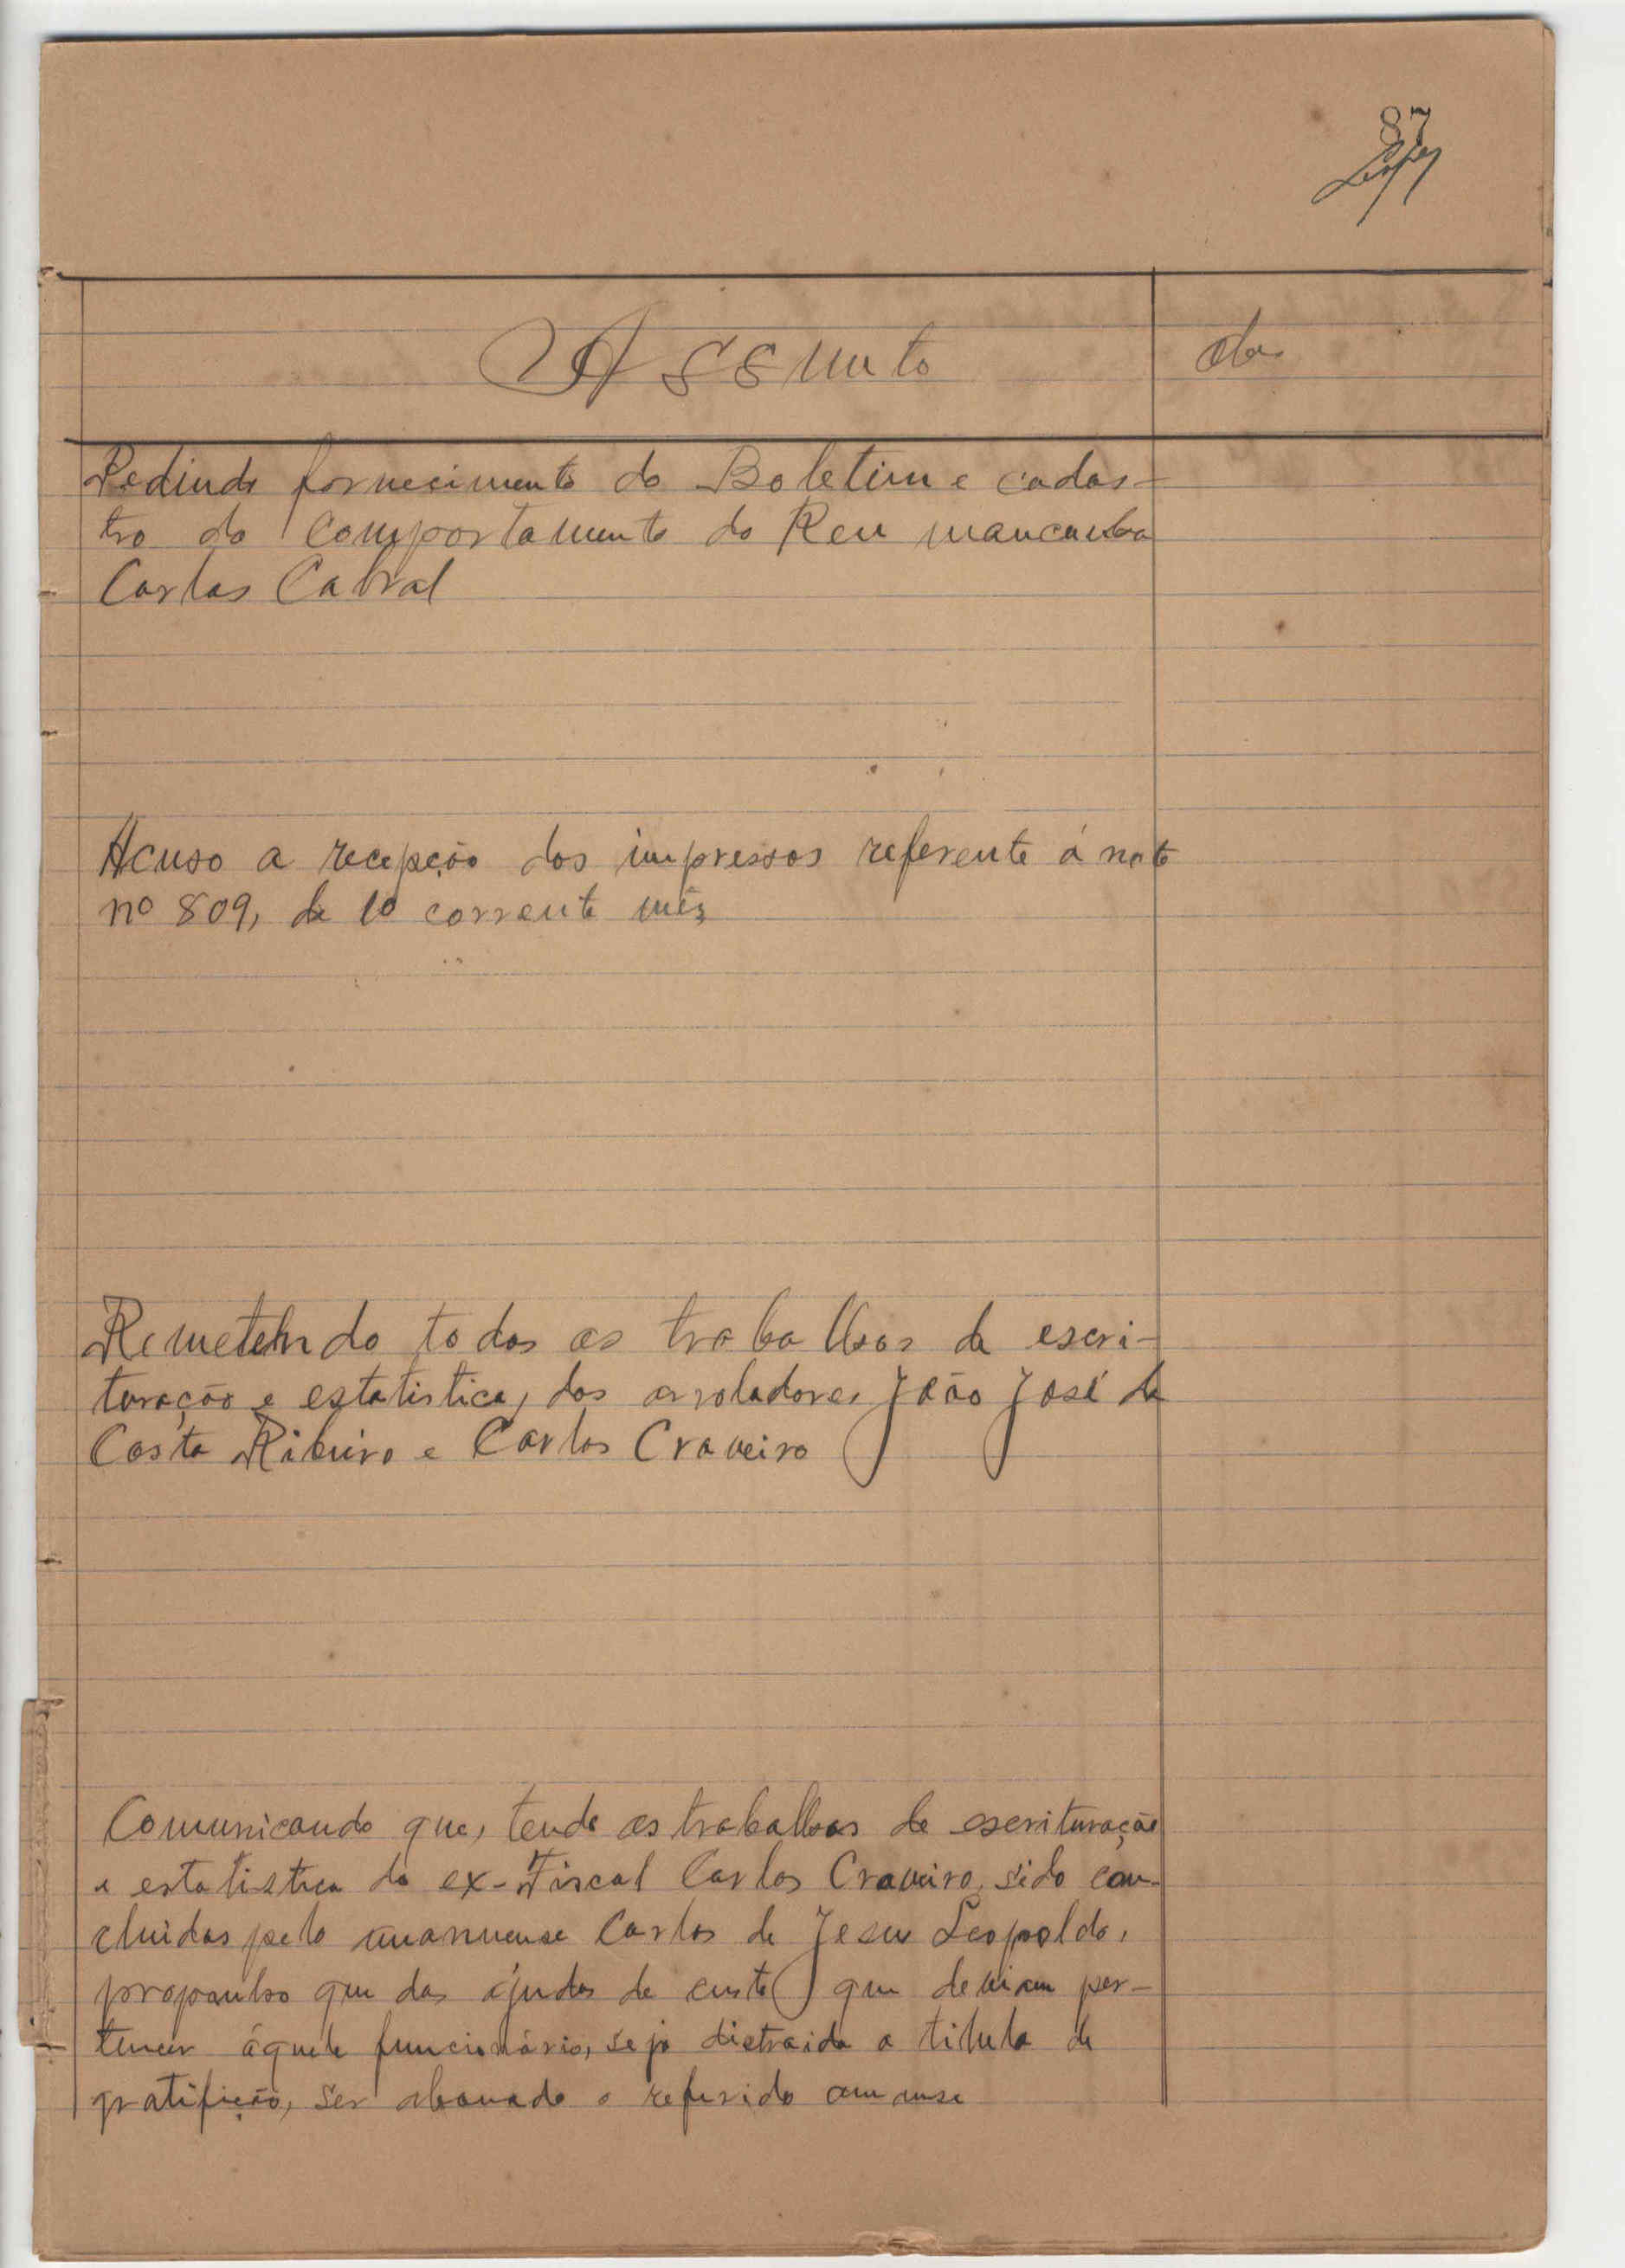 87
Assunto
Pedindo fornecimento do Boletim e cadas-
tro do comportamento do Reu mancanha
Carlos Cabral
Acuso a recepção dos impressos referente á nota
nº 809, de 10 corrente mês
Remetendo todos os trabalhos de escri-
turação e estatistica, dos arroladores João José da
Costa Ribeiro e Carlos Craveiro
Comunicando que, tendo os trabalhos de escrituração
e estatistica do ex-Fiscal Carlos Craveiro, sido con-
cluidos pelo amanuense Carlos de Jesus Leopoldo,
proponho que das ajudas de custo que deviam per-
tencer áquele funcionário, seja distraida a titulo de
gratifição, ser abonado o referido amanuse